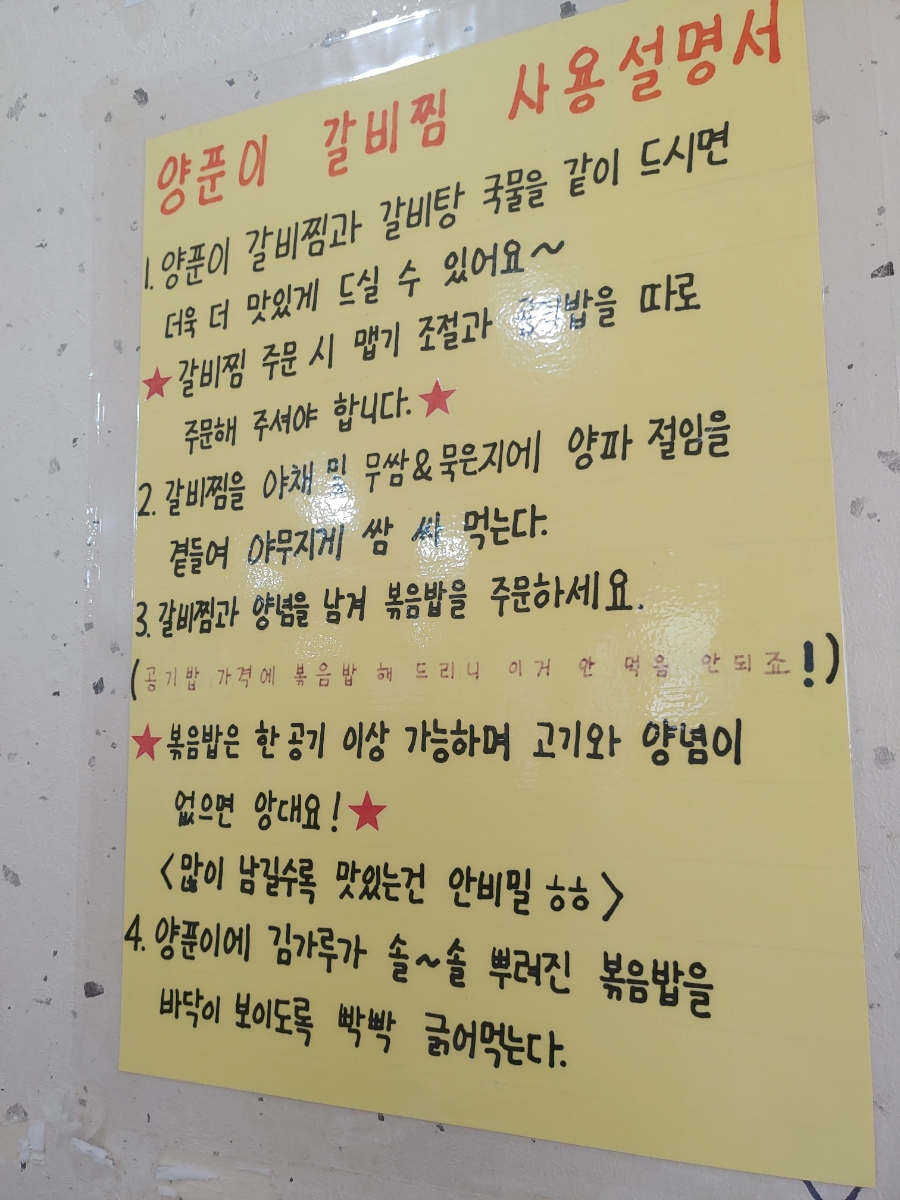 양푼이 갈비찜 사용설명서
1. 양푼이 갈비찜과 갈비탕 국물을 같이 드시면
더욱 더 맛있게 드실 수 있어요~
★갈비찜 주문 시 맵기 조절과 공기밥을 따로
주문해 주셔야 합니다.★
2. 갈비찜을 야채 및 무쌈&묵은지에 양파 절임을
곁들여 야무지게 쌈 싸 먹는다.
3. 갈비찜과 양념을 남겨 볶음밥을 주문하세요.
(공기밥 가격에 볶음밥 해 드리니 이거 안 먹음 안되죠!)
★볶음밥은 한 공기 이상 가능하며 고기와 양념이
없으면 앙대요!★
<많이 남길수록 맛있는건 안비밀 ㅎㅎ>
4. 양푼이에 김가루가 솔~솔 뿌려진 볶음밥을
바닥이 보이도록 빡빡 긁어먹는다.